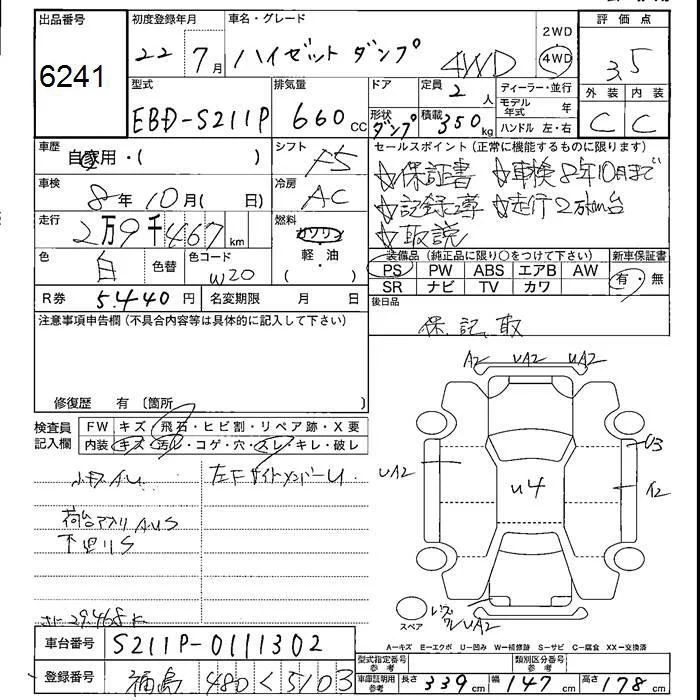 出品番号
6241
初度登録年月
22 7月
車名・グレード
ハイゼット ダンプ 4WD
2WD
4WD
評価点
3.5
外装 内装
C C
型式
EBD-S211P
排気量
660cc
ドア
形状
ダンプ
定員
2人
積載
350kg
ディーラー・並行
モデル年式 年
ハンドル 左・右
車歴
自家用・( )
シフト
F5
車検
8年10月( 日)
冷房
AC
走行
2万9千467km
燃料
ガソリン
軽・油
( )
色
白
色替
色コード
W20
R券
5.440円
名変期限 月 日
セールスポイント(正常に機能するものに限ります)
☆保証書 ☆車検8年10月まで
☆記録簿 ☆走行2万km台
☆取説
装備品(純正品に限り○をつけて下さい)
PS PW ABS エアB AW
SR ナビ TV カワ
新車保証書
有・無
後日品
保、記、取
注意事項申告欄(不具合内容等は具体的に記入して下さい)
修復歴 有〔箇所 〕
検査員記入欄
FW キズ・飛石・ヒビ割・リペア跡・X要
内装 キズ・汚レ・コゲ・穴・スレ・キレ・破レ
小キズAU
左Fサイドメンバーu
荷台アブリAUS
下廻りS
29.468K
A2 UA2 UA2
UA2
U3
A2
U4
UA2
スペア
A-キズ E-エクボ U-凹み W-補修跡 S-サビ C-腐食 XX-交換済
車台番号
S211P-0111302
登録番号
福島 480 く 5103
型式指定番号 参考
類別区分番号 参考
車庫証明用参考
長さ 339cm 幅 147cm 高さ 178cm